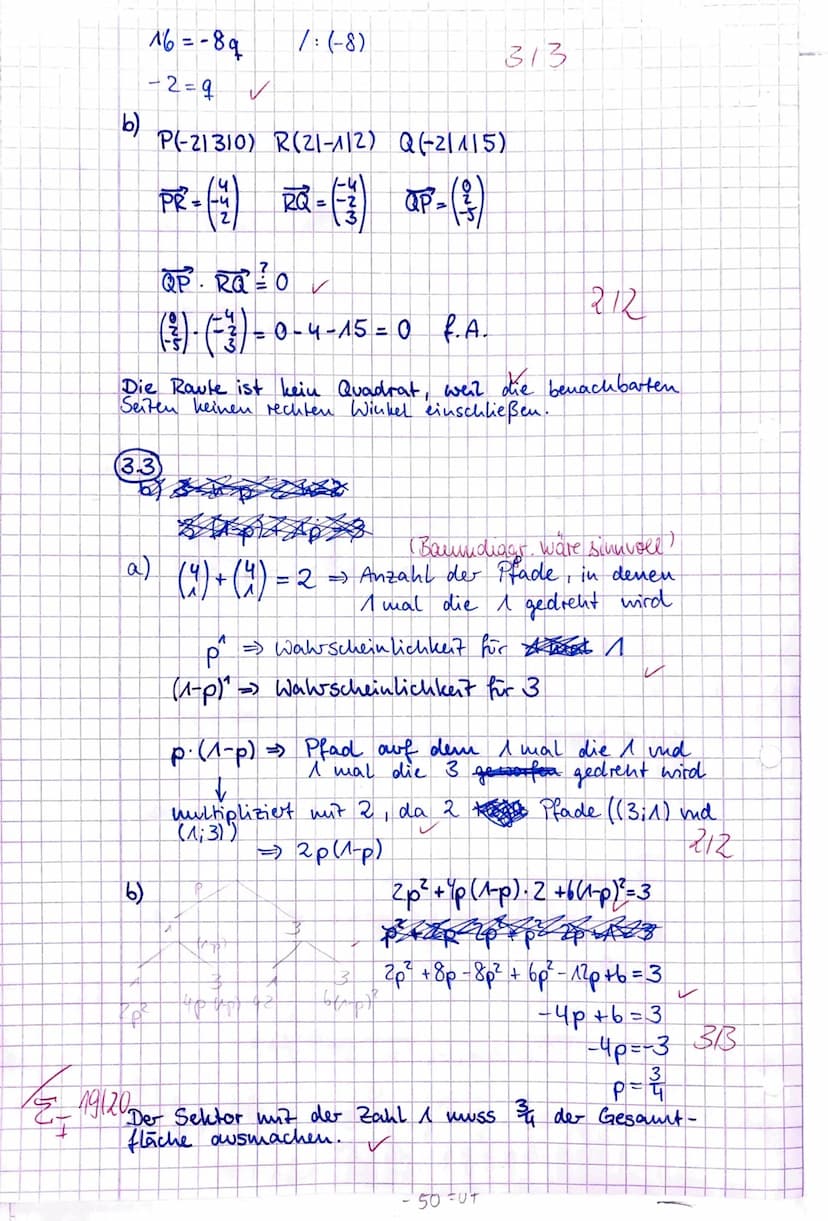 16 = -8q /:(-8)
3/3
-2 = q ✓
b)
P(-2|3|0) R(2|-1|2) Q(-2|1|5)
PR→ = (4 -4 2) RQ→ = (-4 -2 3) QP→ = (0 2 -5)
QP→ · RQ→ ?= 0 ✓
2/2
(0 2 -5) · (-4 -2 3) = 0 - 4 - 15 = 0 f.A.
Die Raute ist kein Quadrat, weil die benachbarten
Seiten keinen rechten Winkel einschließen.
3.3
(Baumdiagr. wäre sinnvoll)
a) (4 1) + (4 1) = 2 ⇒ Anzahl der Pfade, in denen
1 mal die 1 gedreht wird
p¹ ⇒ Wahrscheinlichkeit für 1
✓
(1-p)¹ ⇒ Wahrscheinlichkeit für 3
p·(1-p) ⇒ Pfad auf dem 1 mal die 1 und
1 mal die 3 gedreht wird
↓
multipliziert mit 2, da 2 Pfade ((3;1) und
(1;3))
✓
⇒ 2p(1-p)
2/2
b)
p
1 3
(1-p)
1 3 1 3
2p² 4p(1-p) 6(1-p)²
2p² + 4p(1-p)·2 + 6(1-p)² = 3
2p² + 8p - 8p² + 6p² - 12p + 6 = 3
✓
-4p + 6 = 3
-4p = -3
3/3
p = 3/4
Σ 19/20
I
Der Sektor mit der Zahl 1 muss 3/4 der Gesamt-
fläche ausmachen. ✓